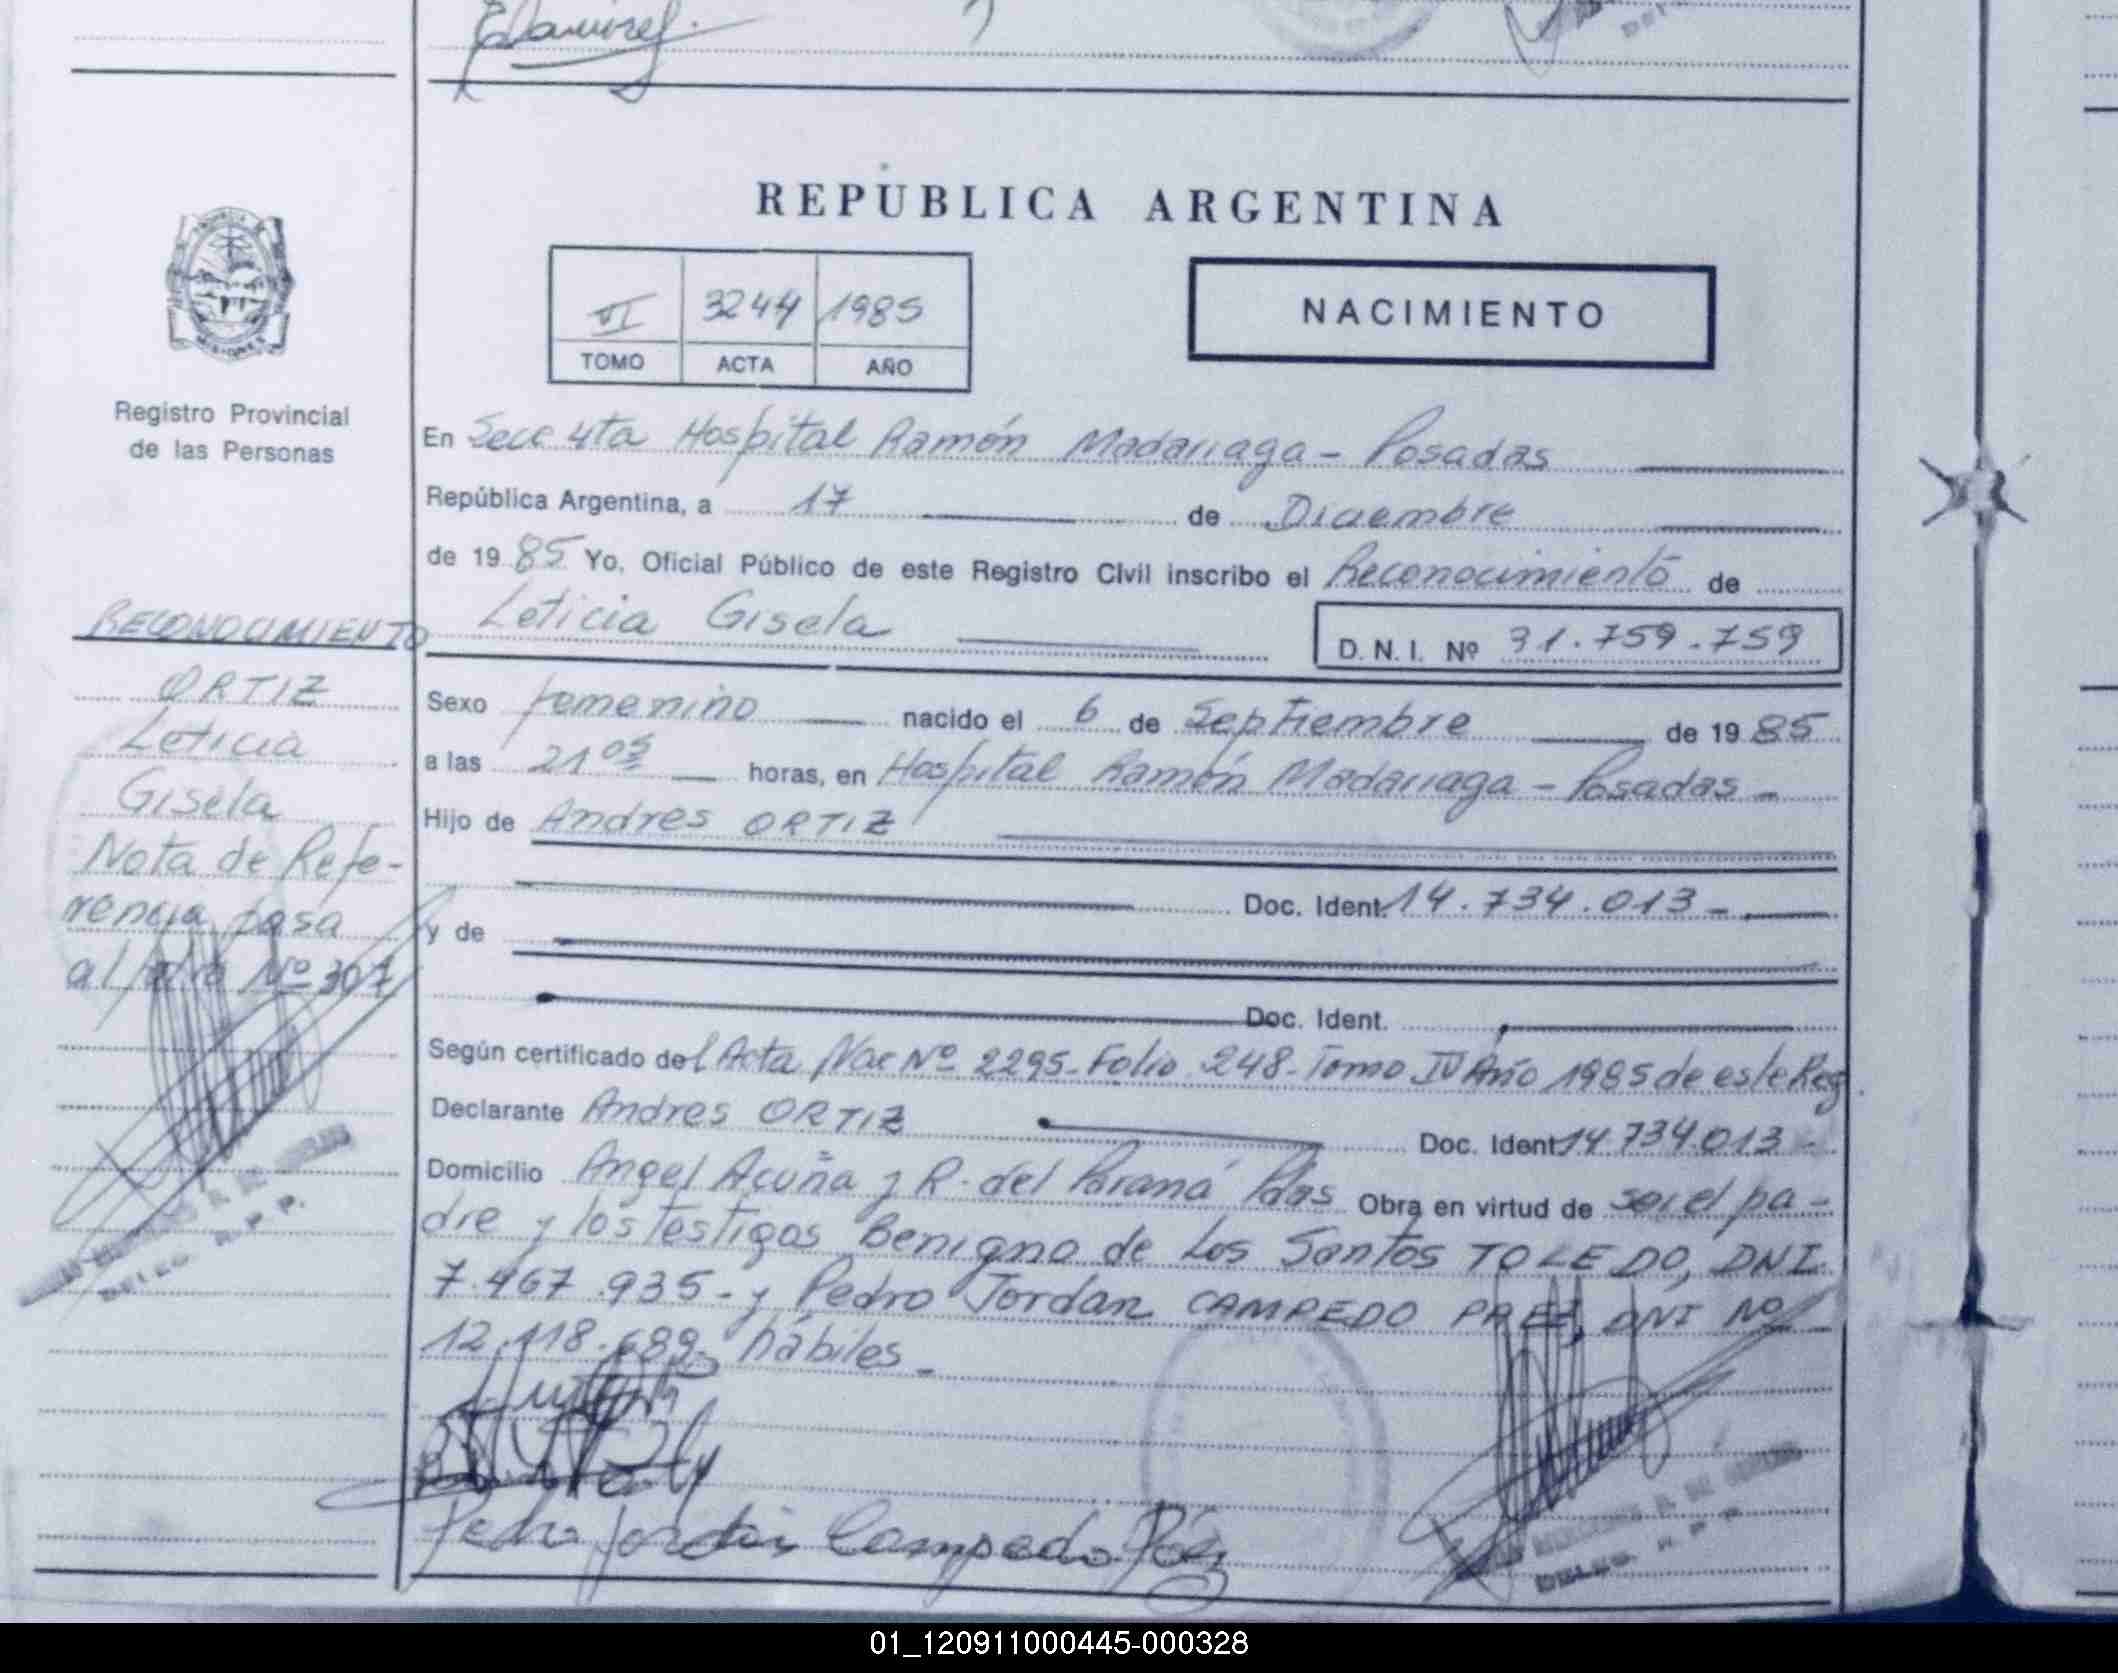 REPUBLICA ARGENTINA
VI 3244 1985
TOMO ACTA AÑO
NACIMIENTO
Registro Provincial
de las Personas
En Secc 4ta Hospital Ramón Madariaga - Posadas
República Argentina, a 17 de Diciembre
de 1985 Yo, Oficial Público de este Registro Civil inscribo el Reconocimiento de
Leticia Gisela D. N. I. Nº 31.759.759
RECONOCIMIENTO
ORTIZ
Leticia
Gisela
Nota de Refe-
rencia pasa
al Nº 307
Sexo femenino nacido el 6 de Septiembre de 1985
a las 21 05 horas, en Hospital Ramón Madariaga - Posadas -
Hijo de Andres ORTIZ
Doc. Ident. 14.734.013 -
y de
Doc. Ident.
Según certificado del Acta Nac Nº 2295 - Folio 248 - Tomo IV Año 1985 de este Reg
Declarante Andres ORTIZ Doc. Ident. 14.734.013 -
Domicilio Angel Acuña y R. del Paraná Pdas Obra en virtud de ser el pa-
dre y los testigos Benigno de Los Santos TOLEDO, DNI
7.467.935 - y Pedro Jordan CAMPEDO PAEZ, DNI Nº
12.118.689 - hábiles -
Pedro Jordan Campedo Páez
DELEG. R. P. P.
01_120911000445-000328